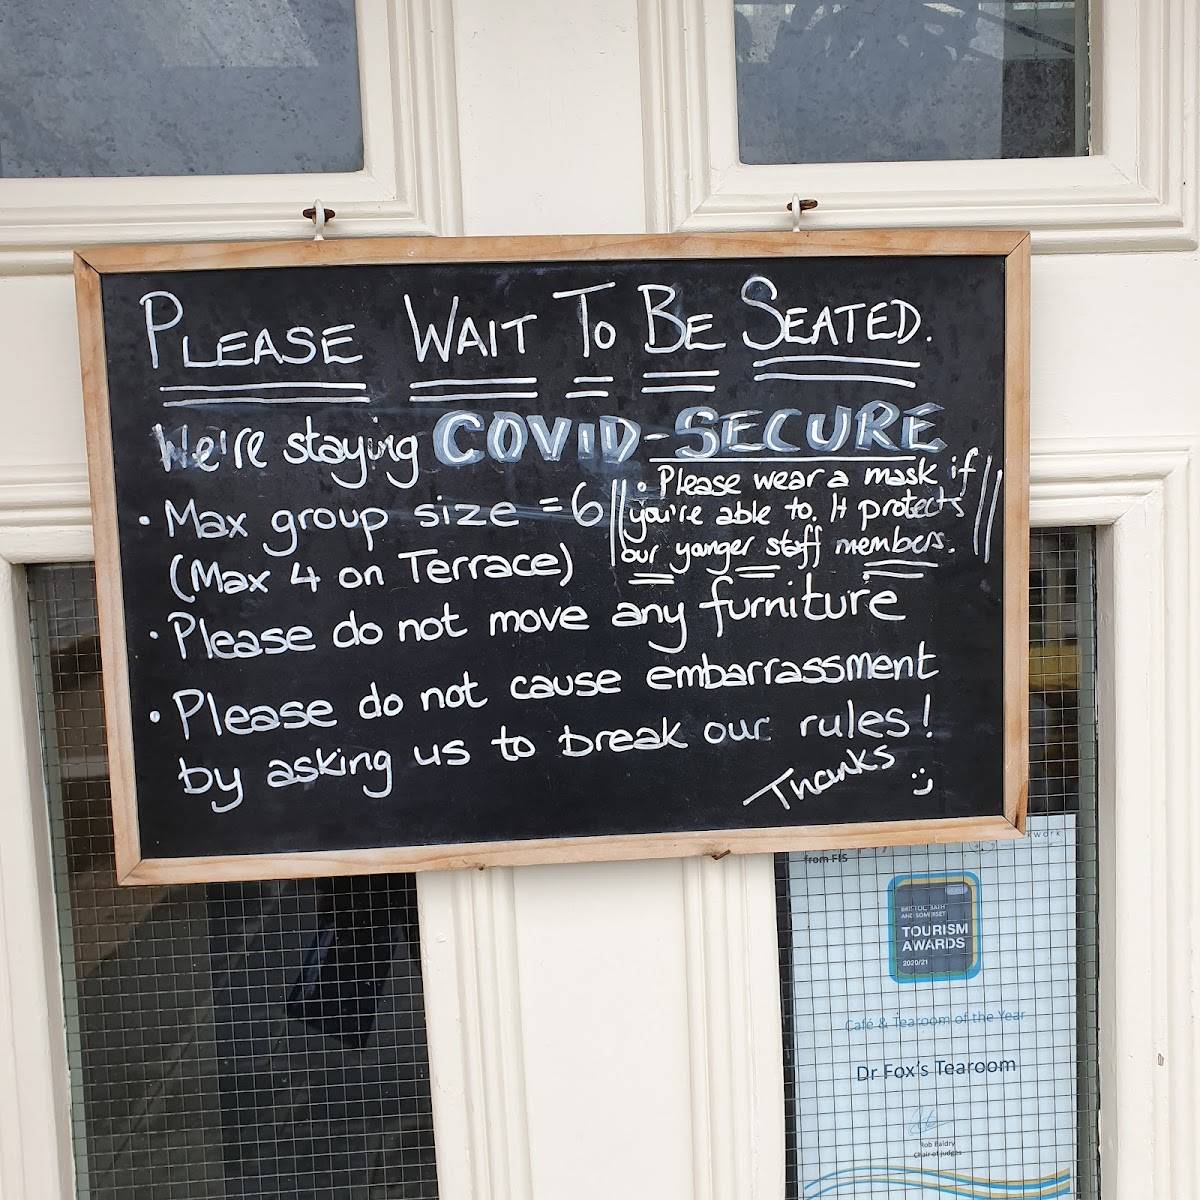 PLEASE WAIT TO BE SEATED.
We're staying COVID-SECURE
• Max group size = 6
(Max 4 on Terrace)
• Please wear a mask if
you're able to. It protects
our yonger staff members.
• Please do not move any furniture
• Please do not cause embarrassment
by asking us to break our rules!
Thanks :)
from FIS
BRISTOL, BATH
AND SOMERSET
TOURISM
AWARDS
2020/21
Café & Tearoom of the Year
Dr Fox's Tearoom
Rob Paldry
Chair of judges